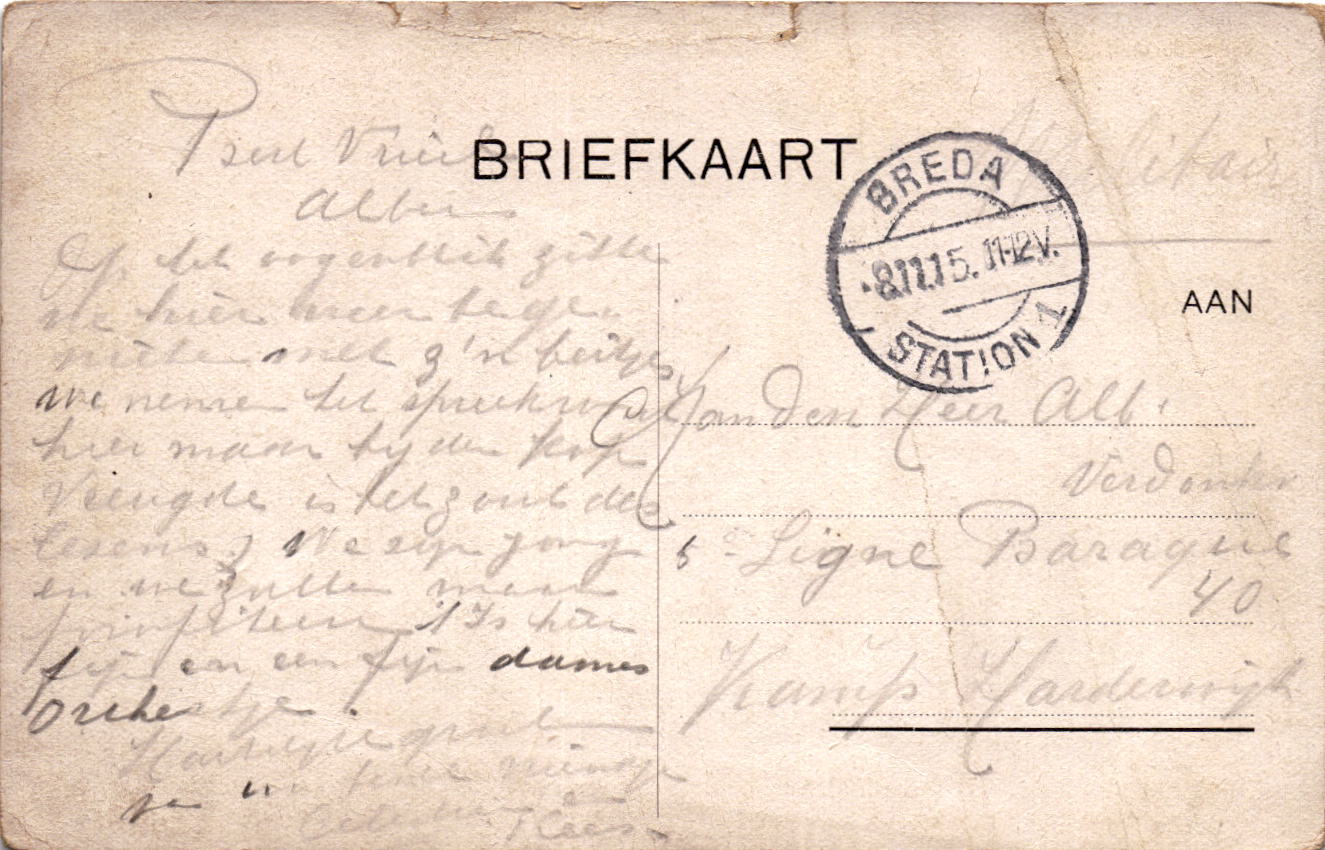 BRIEFKAART
Militair
BREDA
8.11.15. 11-12V.
STATION 1
AAN
Best Vriend
Albers
Op het oogenblik zitte
we hier weer
met z'n beitjes
We nemen het spreekwoord
hier maar bij den kop
Vreugde is het zout des
levens. We zijn jong
en we zulle maar
profiteere. 't Is hier
fijn en een fijn dames
Orchestje.
Hartelijke groet
van uw vriendje
Kees
Aan den Heer Alb.
Verdonken
5e Ligne Baraque
40
Kamp Harderwijk